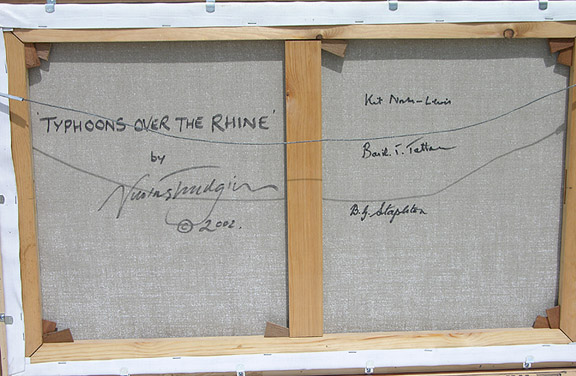 'TYPHOONS OVER THE RHINE'
by
Nicolas Trudgian
© 2002.
Kit North-Lewis
Basil. T. Tatham
B.G. Stapleton